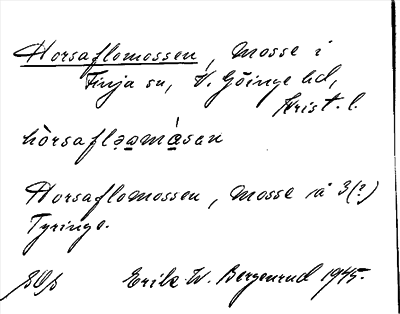 Horsaflomossen, mosse i
Finja sn, V. Göinge hd,
Krist. l.
hòrsaflə͟a͟má͟san
Horsaflomossen, mosse å 3(?)
Tyringe.
Erik W. Bergenrud 1945.